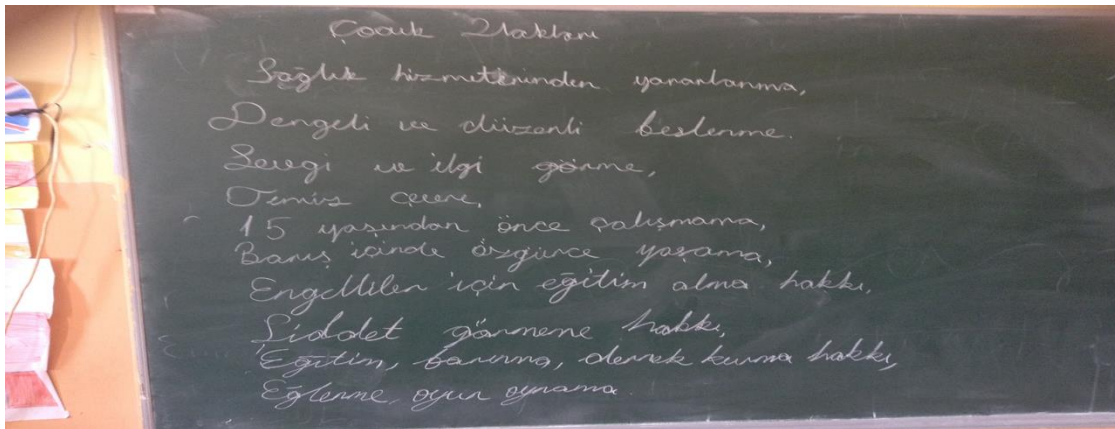 Çocuk Hakları
Sağlık hizmetlerinden yararlanma,
Dengeli ve düzenli beslenme.
Sevgi ve ilgi görme,
Temiz çevre,
15 yaşından önce çalışmama,
Barış içinde özgürce yaşama,
Engelliler için eğitim alma hakkı,
Şiddet görmeme hakkı,
Eğitim, barınma, dernek kurma hakkı,
Eğlenme, oyun oynama.